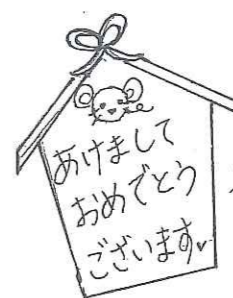 あけまして
おめでとう
ございます♥